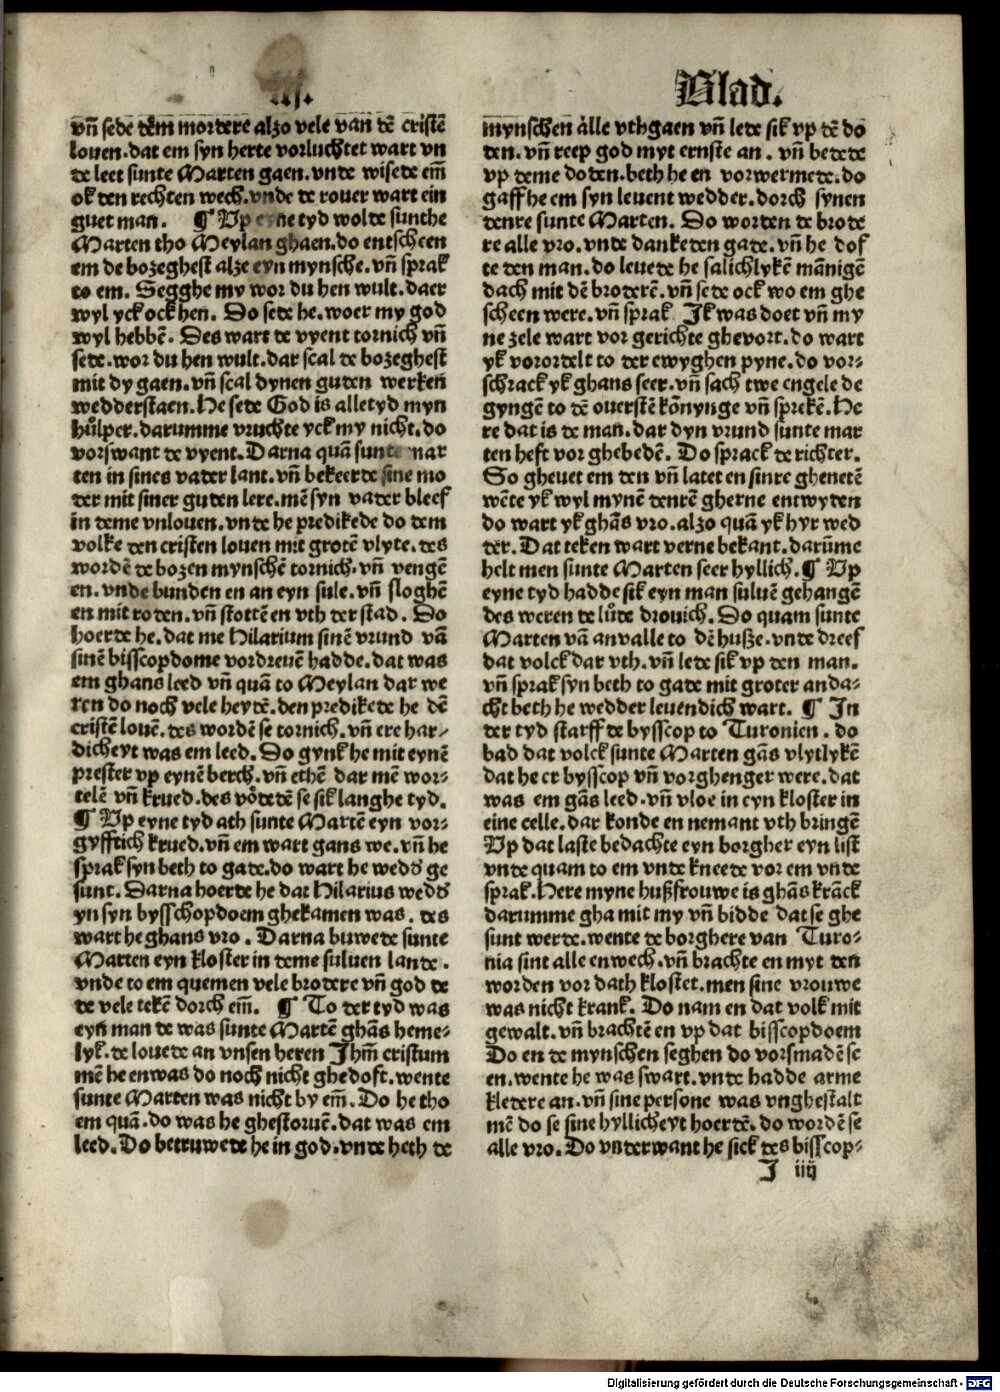 Blad.
vn̄ sede dem̄ mordere alzo vele van dē cristē
louen.dat em syn herte vorluchtet wart vn
de leet sunte Marten gaen.vnde wisede em̄
ok den rechten wech.vnde de rouer wart ein
guet man. ¶ Up eyne tyd wolde sunthe
Marten tho Meylan ghaen.do entscheen
em de bozeghest alze eyn mynsche.vn̄ sprak
to em. Segghe my wor du hen wult.daer
wyl yck ock hen. Do sede he.woer my god
wyl hebbē. Des wart de vyent tornich vn̄
sede.wor du hen wult.dar scal de bozeghest
mit dy gaen.vn̄ scal dynen guden werken̄
wedderstaen.He sede God is alletyd myn
hůlper.darumme vruchte yck my nicht.do
vorswant de vyent.Darna quā sunte mar
ten in sines vader lant.vn̄ bekeerde sine mo
der mit siner guten lere.mē syn vader bleef
in deme vnlouen.vnde he predikede do dem
volke den cristen louen mit grotē vlyte.des
wordē de bozen mynschē tornich.vn̄ vengē
en.vnde bunden en an eyn sule.vn̄ sloghē
en mit roden.vn̄ stottē en vth der stad. Do
hoerde he.dat me Hilarium sinē vrund vā
sinē bisscopdome vordreuē hadde.dat was
em ghans leed vn̄ quā to Meylan dar we
ren do noch vele heydē.den predikede he dē
cristē louē.des wordē se tornich.vn̄ ere har⸗
dicheyt was em leed. Do gynk he mit eynē
prester vp eynē berch.vn̄ ethē dar mē wor⸗
telē vn̄ krued.des vödedē se sik langhe tyd.
¶ Up eyne tyd ath sunte Martē eyn vor⸗
gyfftich krued.vn̄ em wart gans we.vn̄ he
sprak syn beth to gade.do wart he wedd' ge
sunt. Darna hoerde he dat Hilarius wedd'
yn syn bysschopdoem ghekamen was. des
wart he ghans vro. Darna buwede sunte
Marten eyn kloster in deme suluen lande.
vnde to em quemen vele brodere vn̄ god de
de vele tekē dorch em̄. ¶ To der tyd was
eyn man de was sunte Martē ghās heme⸗
lyk.de louede an vnsen heren Jhm̄ cristum
mē he enwas do noch nicht ghedoft.wente
sunte Marten was nicht by em̄. Do he tho
em quā.do was he ghestoruē.dat was em
leed. Do betruwede he in god.vnde heth de
mynschen alle vthgaen vn̄ lede sik vp dē do
den.vn̄ reep god myt ernste an. vn̄ bedede
vp deme doden.beth he en vorwermede.do
gaff he em syn leuent wedder.dorch synen
denre sunte Marten. Do worden de brode
re alle vro.vnde dankeden gade.vn̄ he dof
te den man.do leuede he salichlykē mānigē
dach mit dē broderē.vn̄ sede ock wo em ghe
scheen were.vn̄ sprak Ik was doet vn̄ my
ne zele wart vor gerichte ghevort.do wart
yk vorordelt to der ewyghen pyne.do vor⸗
schrack yk ghans seer.vn̄ sach twe engele de
gyngē to dē ouerstē kōnynge vn̄ sprekē.He
re dat is de man.dar dyn vrund sunte mar
ten heft vor ghebedē. Do sprack de richter.
So gheuet em den vn̄ latet en sinre ghenetē
wēte yk wyl mynē denrē gherne entwyden
do wart yk ghās vro.alzo quā yk hyr wed
der.Dat teken wart verne bekant.darūme
helt men sunte Marten seer hyllich.¶ Up
eyne tyd hadde sik eyn man suluē gehangē
des weren de lůde drouich. Do quam sunte
Marten vā anvalle to dē huße.vnde dreef
dat volck dar vth.vn̄ lede sik vp den man.
vn̄ sprak syn beth to gade mit groter anda⸗
cht beth he wedder leuendich wart. ¶ In
der tyd starff de bysscop to Turonien.do
bad dat volck sunte Marten gās vlytlykē
dat he er bysscop vn̄ vorghenger were.dat
was em gās leed.vn̄ vloe in eyn kloster in
eine celle.dar konde en nemant vth bringē
Up dat laste bedachte eyn borgher eyn list
vnde quam to em vnde kneede vor em vnde
sprak.Here myne hußfrouwe is ghās krāck
darumme gha mit my vn̄ bidde dat se ghe
sunt werde.wente de borghere van Turo⸗
nia sint alle enwech.vn̄ brachte en myt den
worden vor dath kloster.men sine vrouwe
was nicht krank. Do nam en dat volk mit
gewalt.vn̄ brachtē en vp dat bisscopdoem
Do en de mynschen seghen do vorsmadē se
en.wente he was swart.vnde hadde arme
kledere an.vn̄ sine persone was vnghestalt
mē do se sine hyllicheyt hoerdē.do wordē se
alle vro. Do vnderwant he sick des bisscop⸗
J iiij
Digitalisierung gefördert durch die Deutsche Forschungsgemeinschaft - DFG